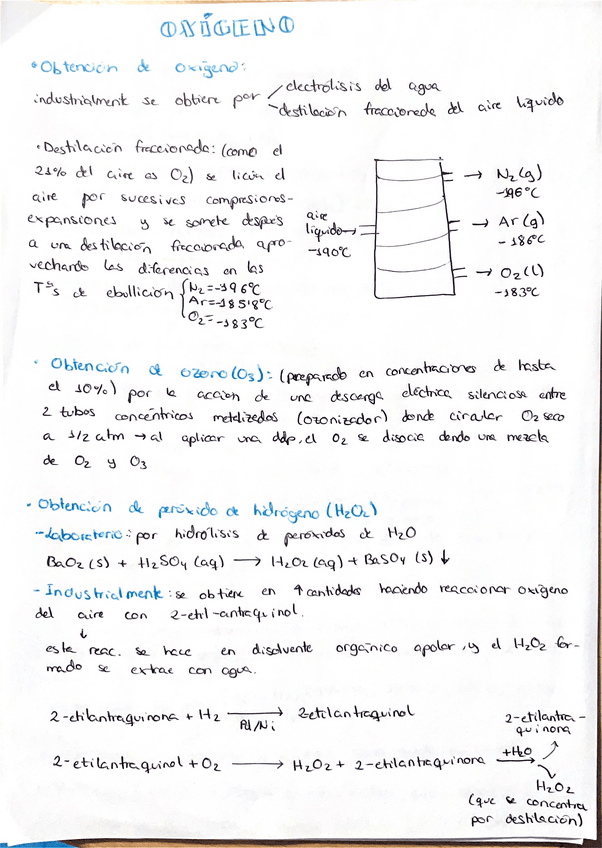 OXÍGENO
• Obtención de oxígeno:
industrialmente se obtiere por
electrólisis del agua
destilación fraccionada del aire líquido
• Destilación fraccionada: (como el
21% del aire es O2) se licúa el
aire por sucesivas compresiones-
expansiones y se somete después
a una destilación fraccionada apro-
vechando las diferencias en las
Tªs de ebullición
N2 = -196ºC
Ar = -185'8ºC
O2 = -183ºC
aire
líquido →
-190ºC
→ N2 (g)
-196ºC
→ Ar (g)
-186ºC
→ O2 (l)
-183ºC
• Obtención de ozono (O3): (preparado en concentraciones de hasta
el 10%) por la acción de una descarga eléctrica silenciosa entre
2 tubos concéntricos metalizados (ozonizador) donde circular O2 seco
a 1/2 atm → al aplicar una ddp, el O2 se disocia dando una mezcla
de O2 y O3
• Obtención de peróxido de hidrógeno (H2O2)
- Laboratorio: por hidrólisis de peróxidos de H2O
BaO2 (s) + H2SO4 (aq) → H2O2 (aq) + BaSO4 (s) ↓
- Industrialmente: se obtiene en ↑ cantidades haciendo reaccionar oxígeno
del aire con 2-etil-antraquinol.
↓
esta reac. se hace en disolvente orgánico apolar, y el H2O2 for-
mado se extrae con agua.
2-etilantraquinona + H2 → 2-etilantraquinol
Pd/Ni
2-etilantraquinol + O2 → H2O2 + 2-etilantraquinona
+H2O
2-etilantra-
quinona
H2O2
(que se concentra
por destilación)